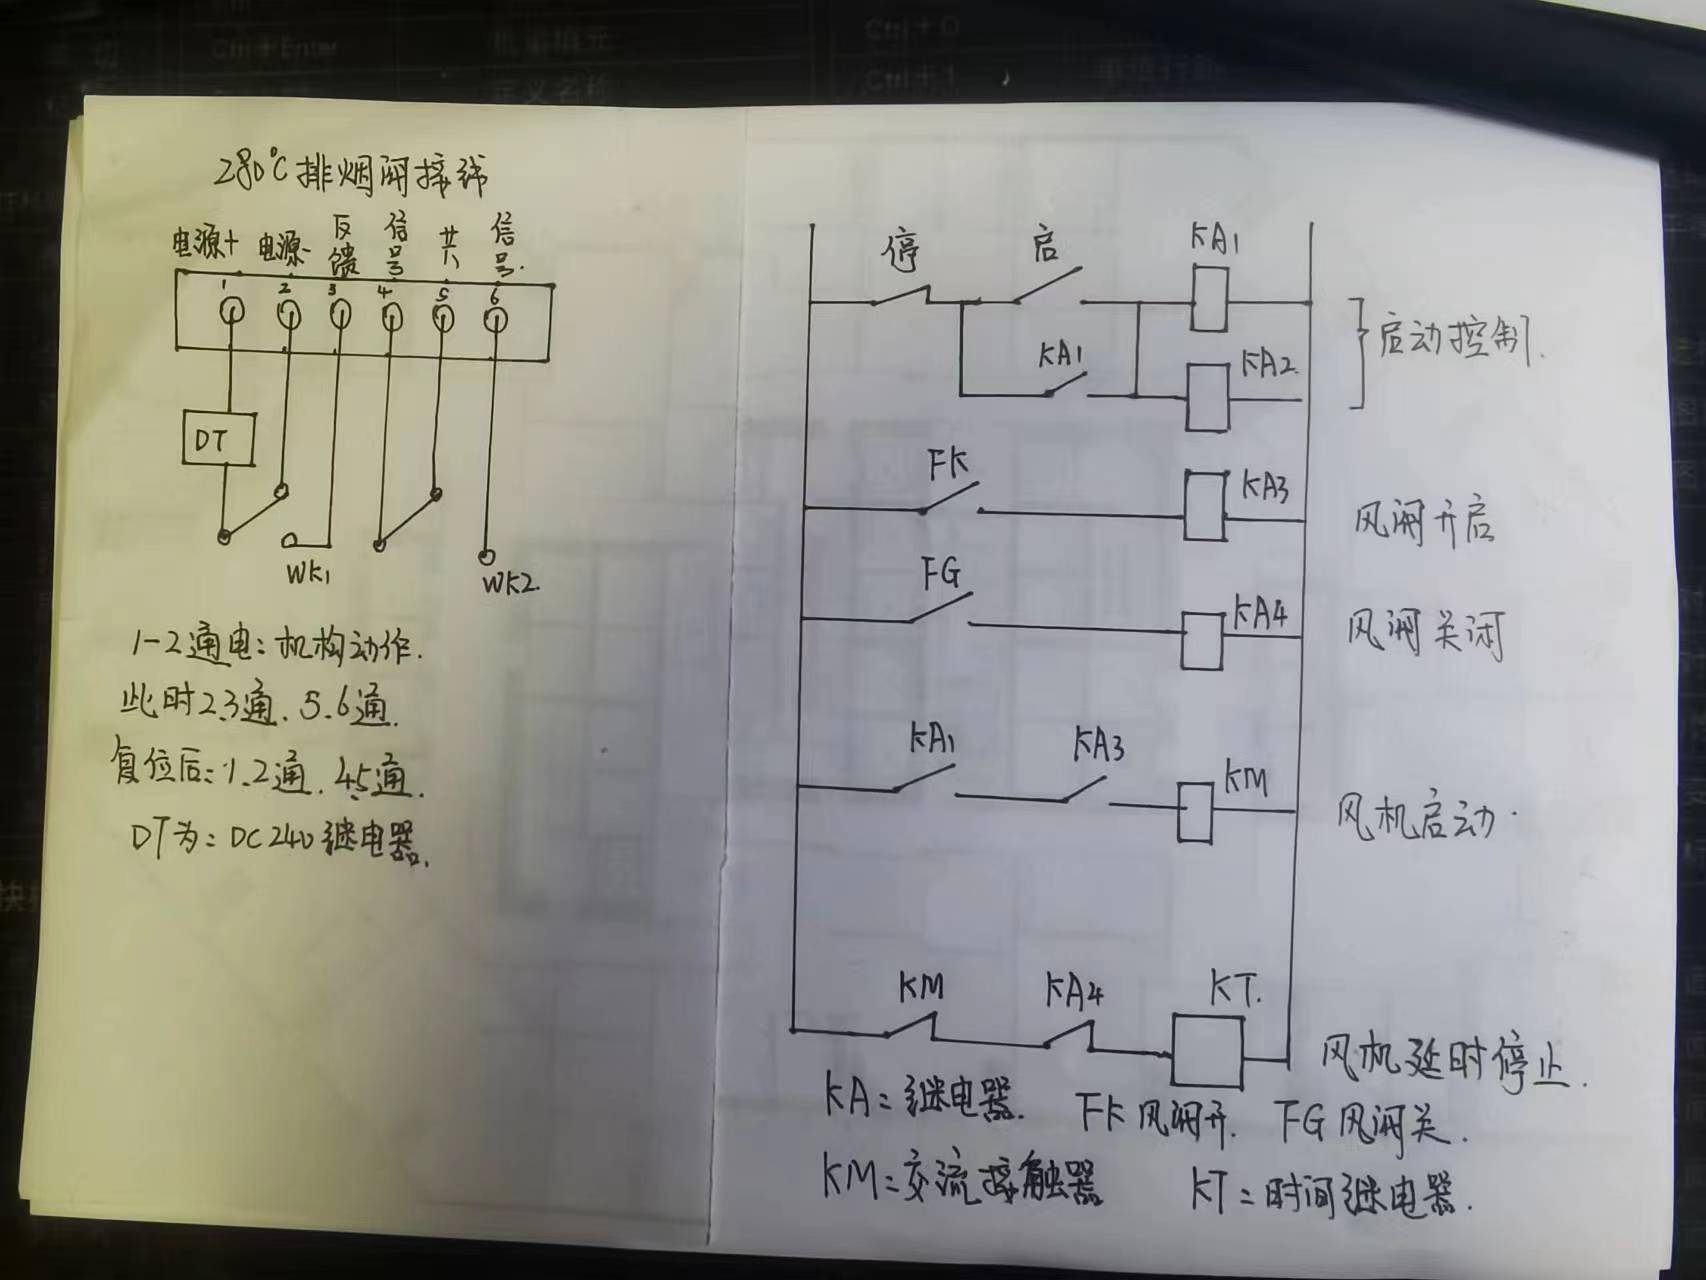 280℃排烟阀接线
电源+ 电源- 反馈 信号 共 信号.
1 2 3 4 5 6
DT
WK1
WK2.
1-2通电：机构动作.
此时2.3通.5.6通.
复位后：1.2通.4.5通.
DT为：DC24V继电器.
停 启 KA1
KA1 KA2.
启动控制.
FK KA3
风阀开启
FG KA4
风阀关闭
KA1 KA3 KM
风机启动.
KM KA4 KT.
风机延时停止.
KA=继电器. FK风阀开. FG风阀关.
KM=交流接触器 KT=时间继电器.
Ctrl+Enter
定义名称